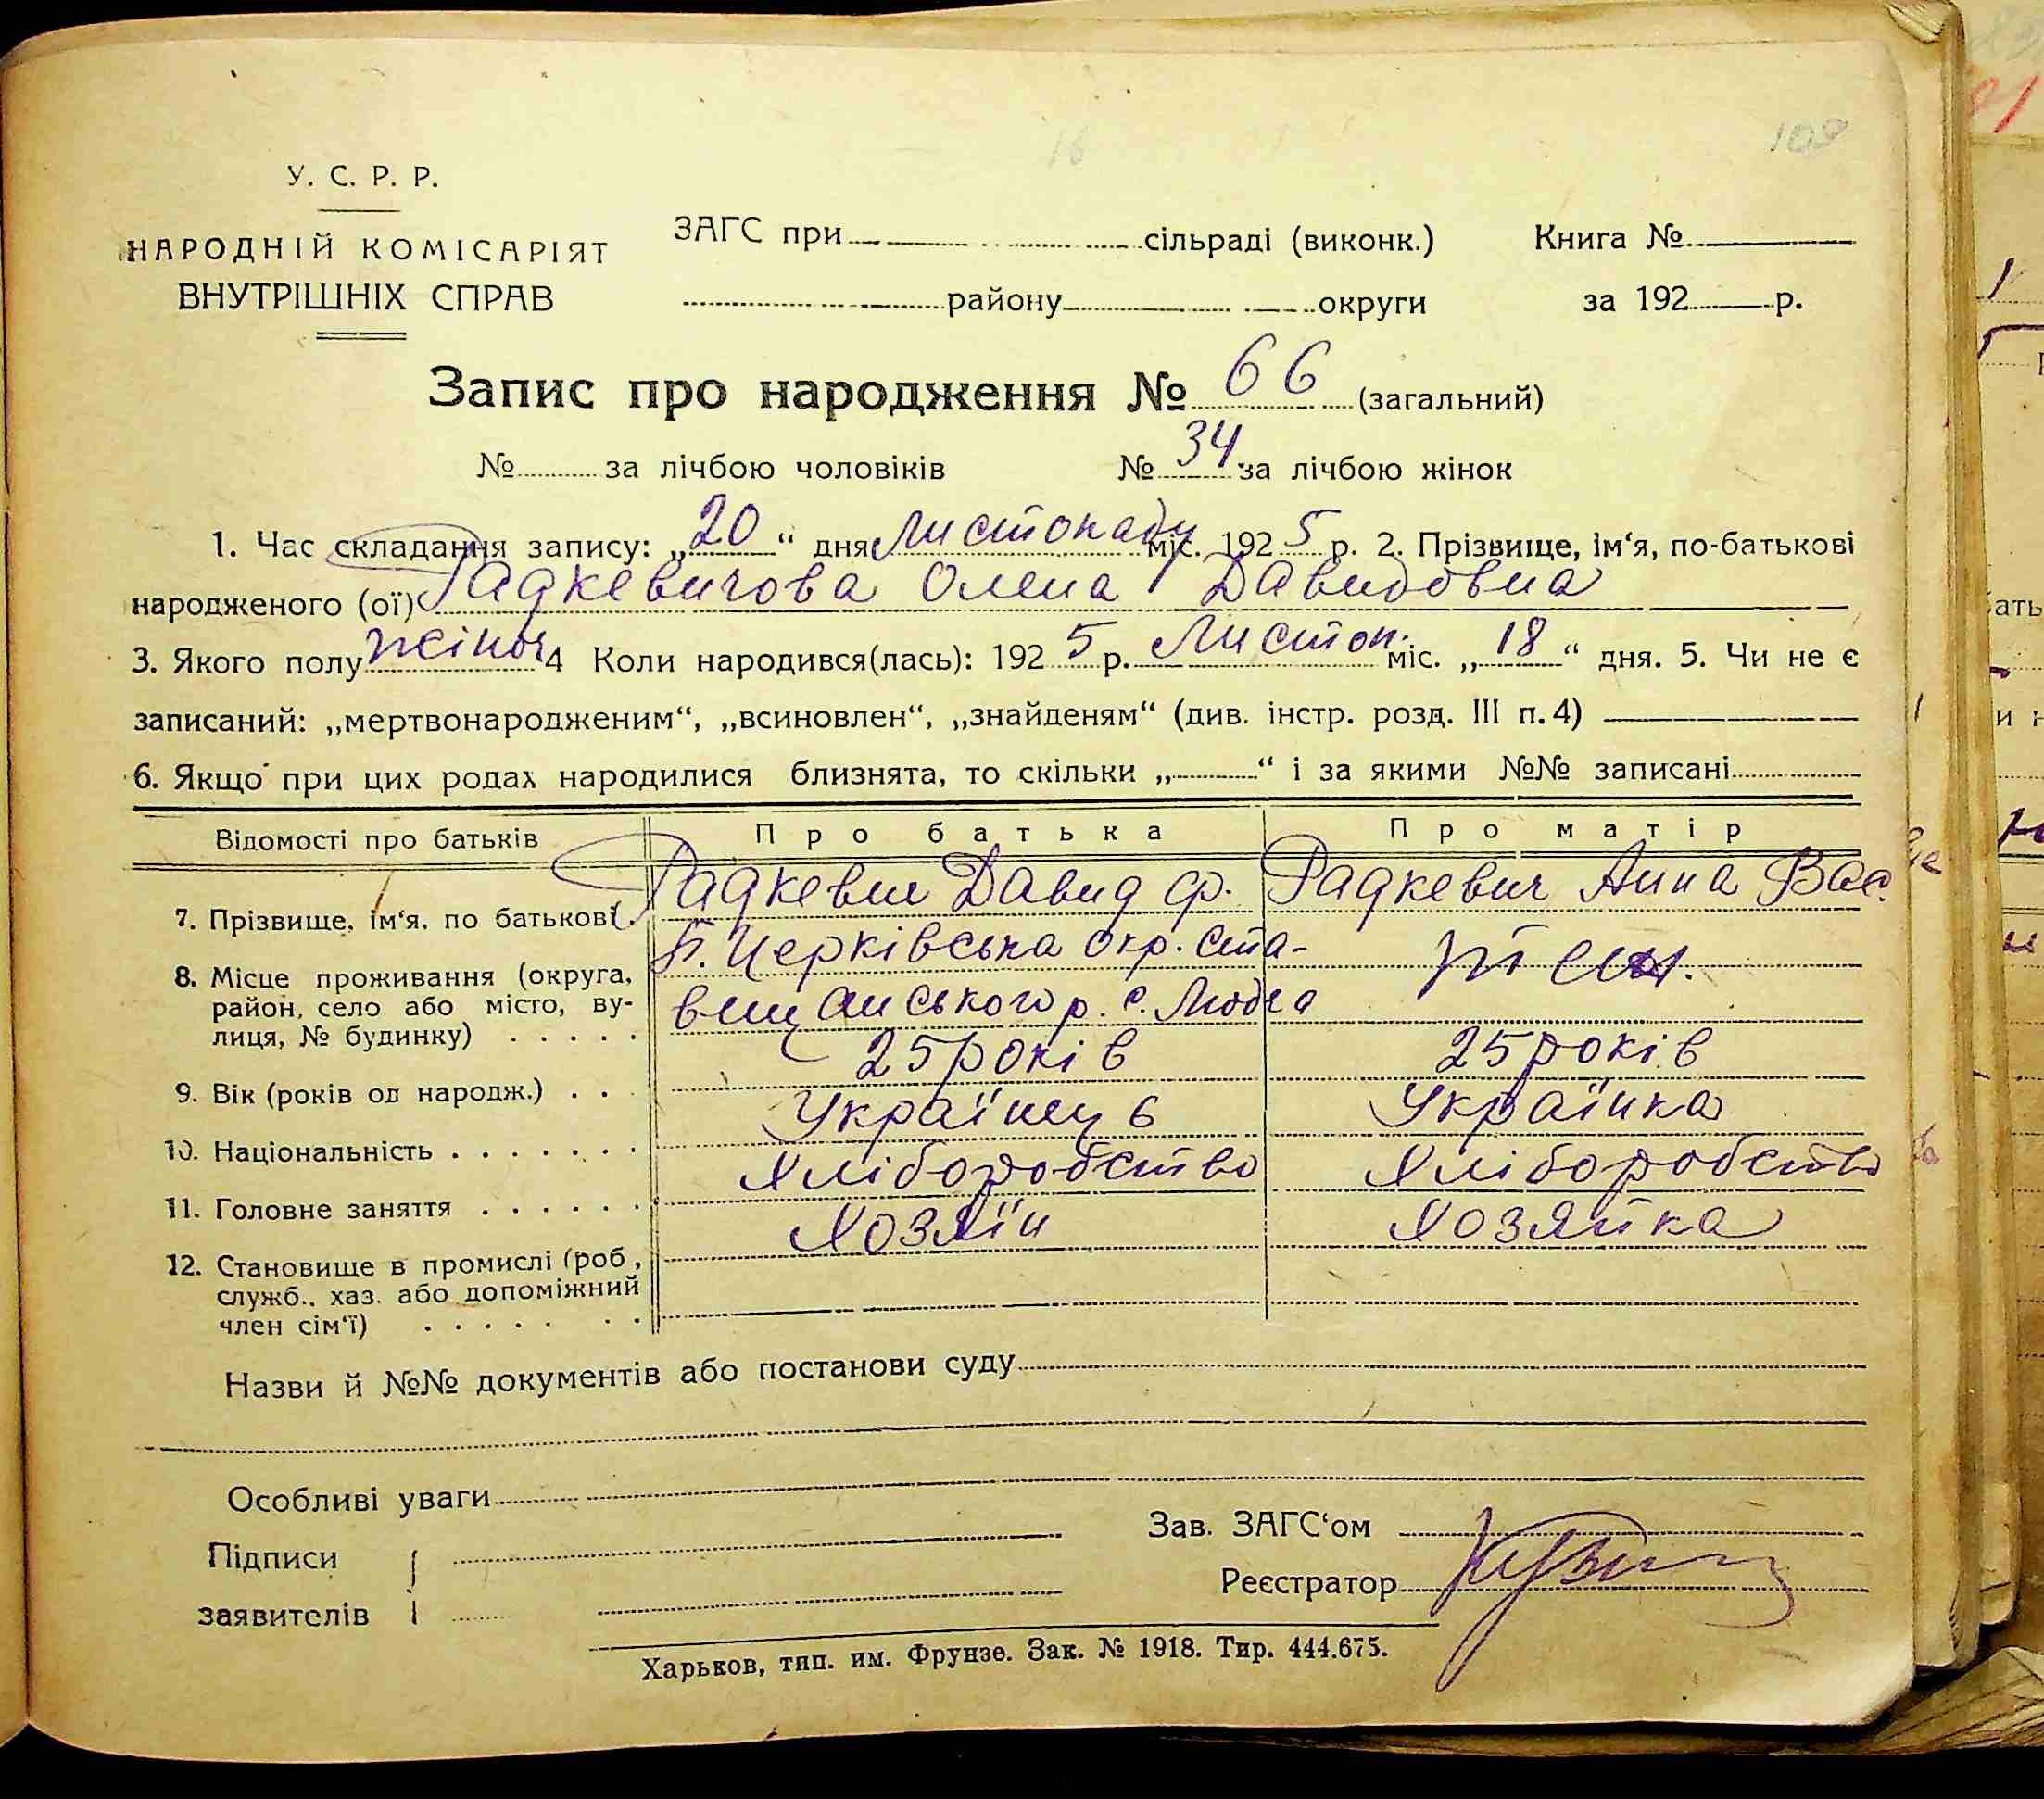 109
16
У. С. Р. Р.
НАРОДНІЙ КОМІСАРІЯТ
ВНУТРІШНІХ СПРАВ
ЗАГС при сільраді (виконк.)
району округи
Книга №
за 192 р.
Запис про народження № 66 (загальний)
№ за лічбою чоловіків № 34 за лічбою жінок
1. Час складання запису: „20“ дня Листопаду міс. 1925 р. 2. Прізвище, ім‘я, по-батькові
народженого (ої) Радкевичова Олена Давидовна
3. Якого полу жіноч 4 Коли народився(лась): 1925 р. Листоп. міс. „18“ дня. 5. Чи не є
записаний: „мертвонародженим“, „всиновлен“, „знайденям“ (див. інстр. розд. III п. 4)
6. Якщо при цих родах народилися близнята, то скільки „ “ і за якими №№ записані
Відомості про батьків Про батька Про матір
7. Прізвище, ім‘я, по батькові Радкевич Давид ф. Радкевич Анна Вас.
8. Місце проживання (округа, район, село або місто, вулиця, № будинку) Б. Церківська окр. Ста-
вищанського р. с. Люб ча
9. Вік (років од народж.) 25 років 25 років
10. Національність Українець Українка
11. Головне заняття Хліборобство Хліборобство
12. Становище в промислі (роб, служб., хаз. або допоміжний член сім‘ї) Хозяїн Хозяйка
Назви й №№ документів або постанови суду
Особливі уваги
Підписи
заявителів
Зав. ЗАГС‘ом
Реєстратор
Харьков, тип. им. Фрунзе. Зак. № 1918. Тир. 444.675.